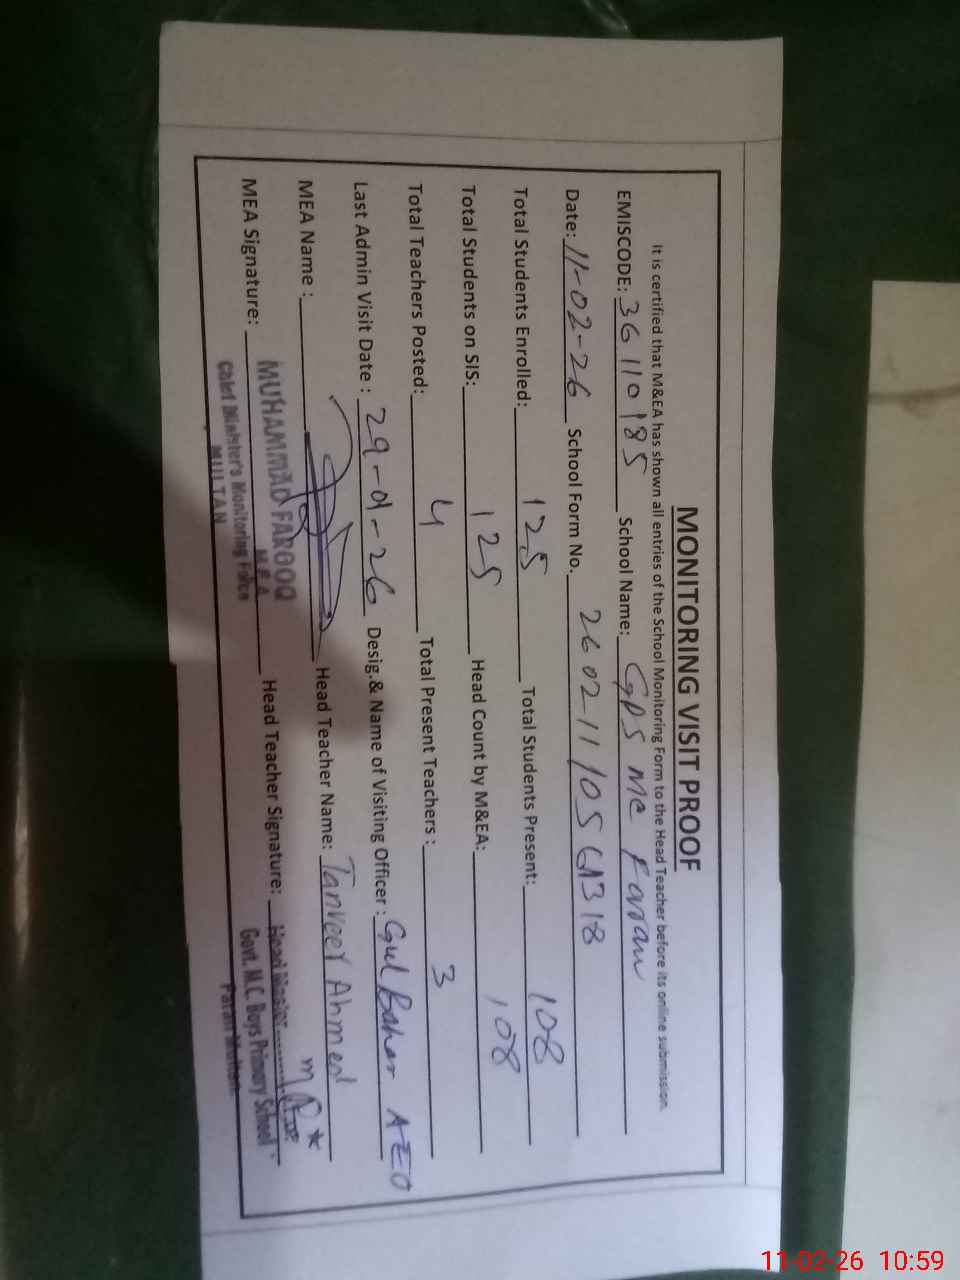 MONITORING VISIT PROOF
It is certified that M&EA has shown all entries of the School Monitoring Form to the Head Teacher before its online submission.
EMISCODE: 36110185 School Name: GPS MC Faran
Date: 11-02-26 School Form No. 260211105 318
Total Students Enrolled: 125 Total Students Present: 108
Total Students on SIS: 125 Head Count by M&EA: 108
Total Teachers Posted: 4 Total Present Teachers : 3
Last Admin Visit Date : 29-01-26 Desig.& Name of Visiting Officer : Gul Bahar AEO
MEA Name : Head Teacher Name: Tanveer Ahmed
MEA Signature: Head Teacher Signature:
MUHAMMAD FAROOQ
M.E.A
Chief Minister's Monitoring Force
MULTAN
Head Master
Govt. M.C. Boys Primary School
Faran Multan
11-02-26 10:59